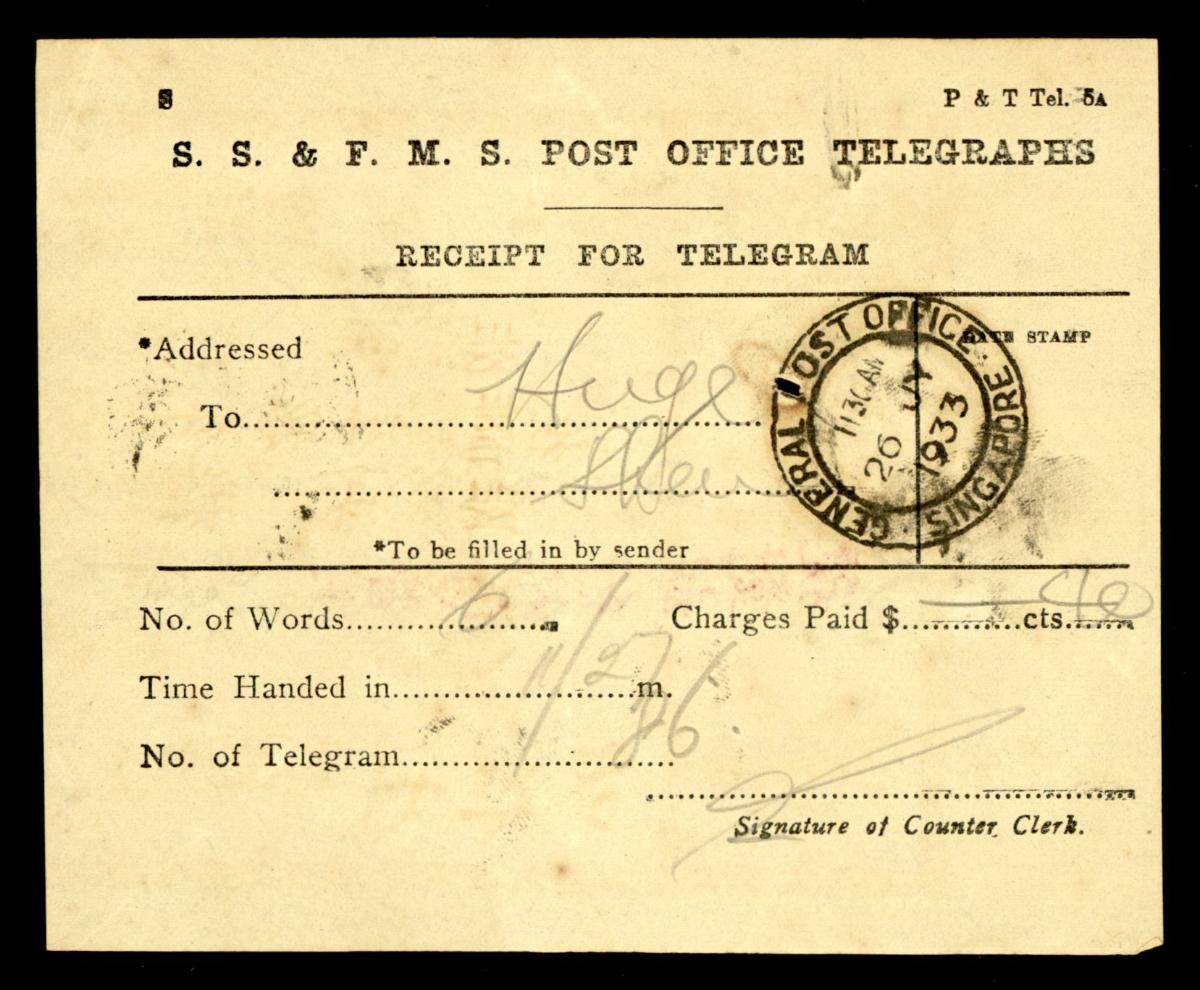 P & T Tel. 5A
S. S. & F. M. S. POST OFFICE TELEGRAPHS
RECEIPT FOR TELEGRAM
*Addressed
DATE STAMP
To
Huge
*To be filled in by sender
GENERAL POST OFFICE · SINGAPORE
1130 AM
26
1933
No. of Words 6
Charges Paid $ cts.
Time Handed in m.
No. of Telegram
Signature of Counter Clerk.